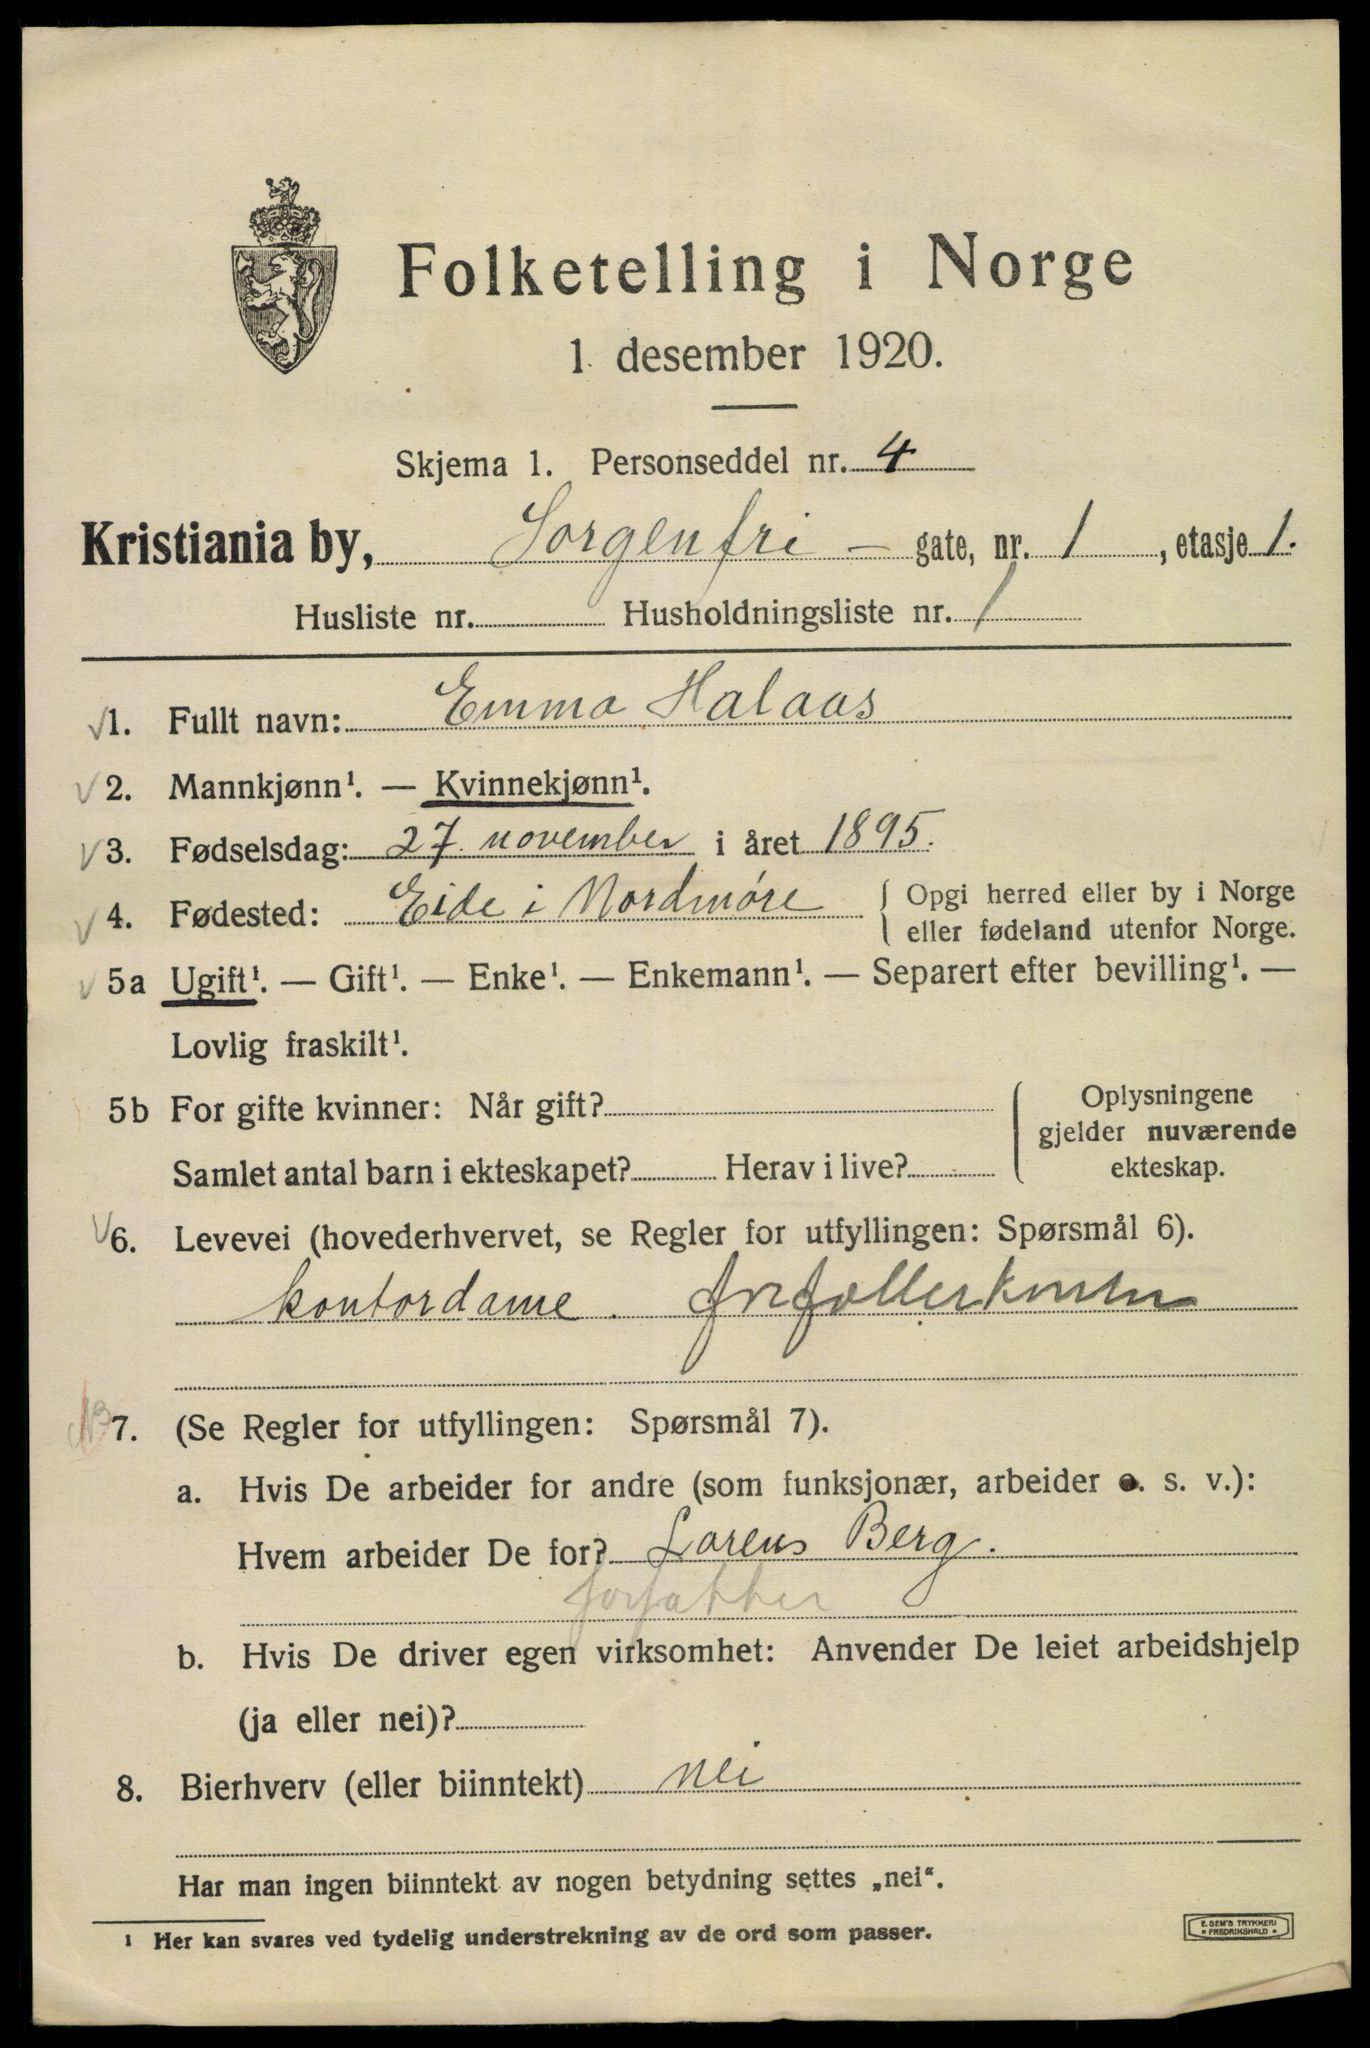 Folketelling i Norge
1. desember 1920.
Skjema 1. Personseddel nr. 4
Kristiania by, Sorgenfri - gate, nr. 1, etasje 1.
Husliste nr. Husholdningsliste nr. 1
1. Fullt navn: Emma Halaas
2. Mannkjønn¹. — Kvinnekjønn¹.
3. Fødselsdag: 27. november i året 1895.
4. Fødested: Eide i Nordmøre { Opgi herred eller by i Norge
eller fødeland utenfor Norge.
5a Ugift¹. — Gift¹. — Enke¹. — Enkemann¹. — Separert efter bevilling¹. —
Lovlig fraskilt¹.
5b For gifte kvinner: Når gift? Oplysningene
gjelder nuværende
Samlet antal barn i ekteskapet? Herav i live? ekteskap.
6. Levevei (hovederhvervet, se Regler for utfyllingen: Spørsmål 6).
kontordame.
7. (Se Regler for utfyllingen: Spørsmål 7).
a. Hvis De arbeider for andre (som funksjonær, arbeider o. s. v.):
Hvem arbeider De for? Lorens Berg.
forfatter
b. Hvis De driver egen virksomhet: Anvender De leiet arbeidshjelp
(ja eller nei)?
8. Bierhverv (eller biinntekt) nei
Har man ingen biinntekt av nogen betydning settes „nei“.
¹ Her kan svares ved tydelig understrekning av de ord som passer.
E. SEM'S TRYKKERI
* FREDRIKSHALD *